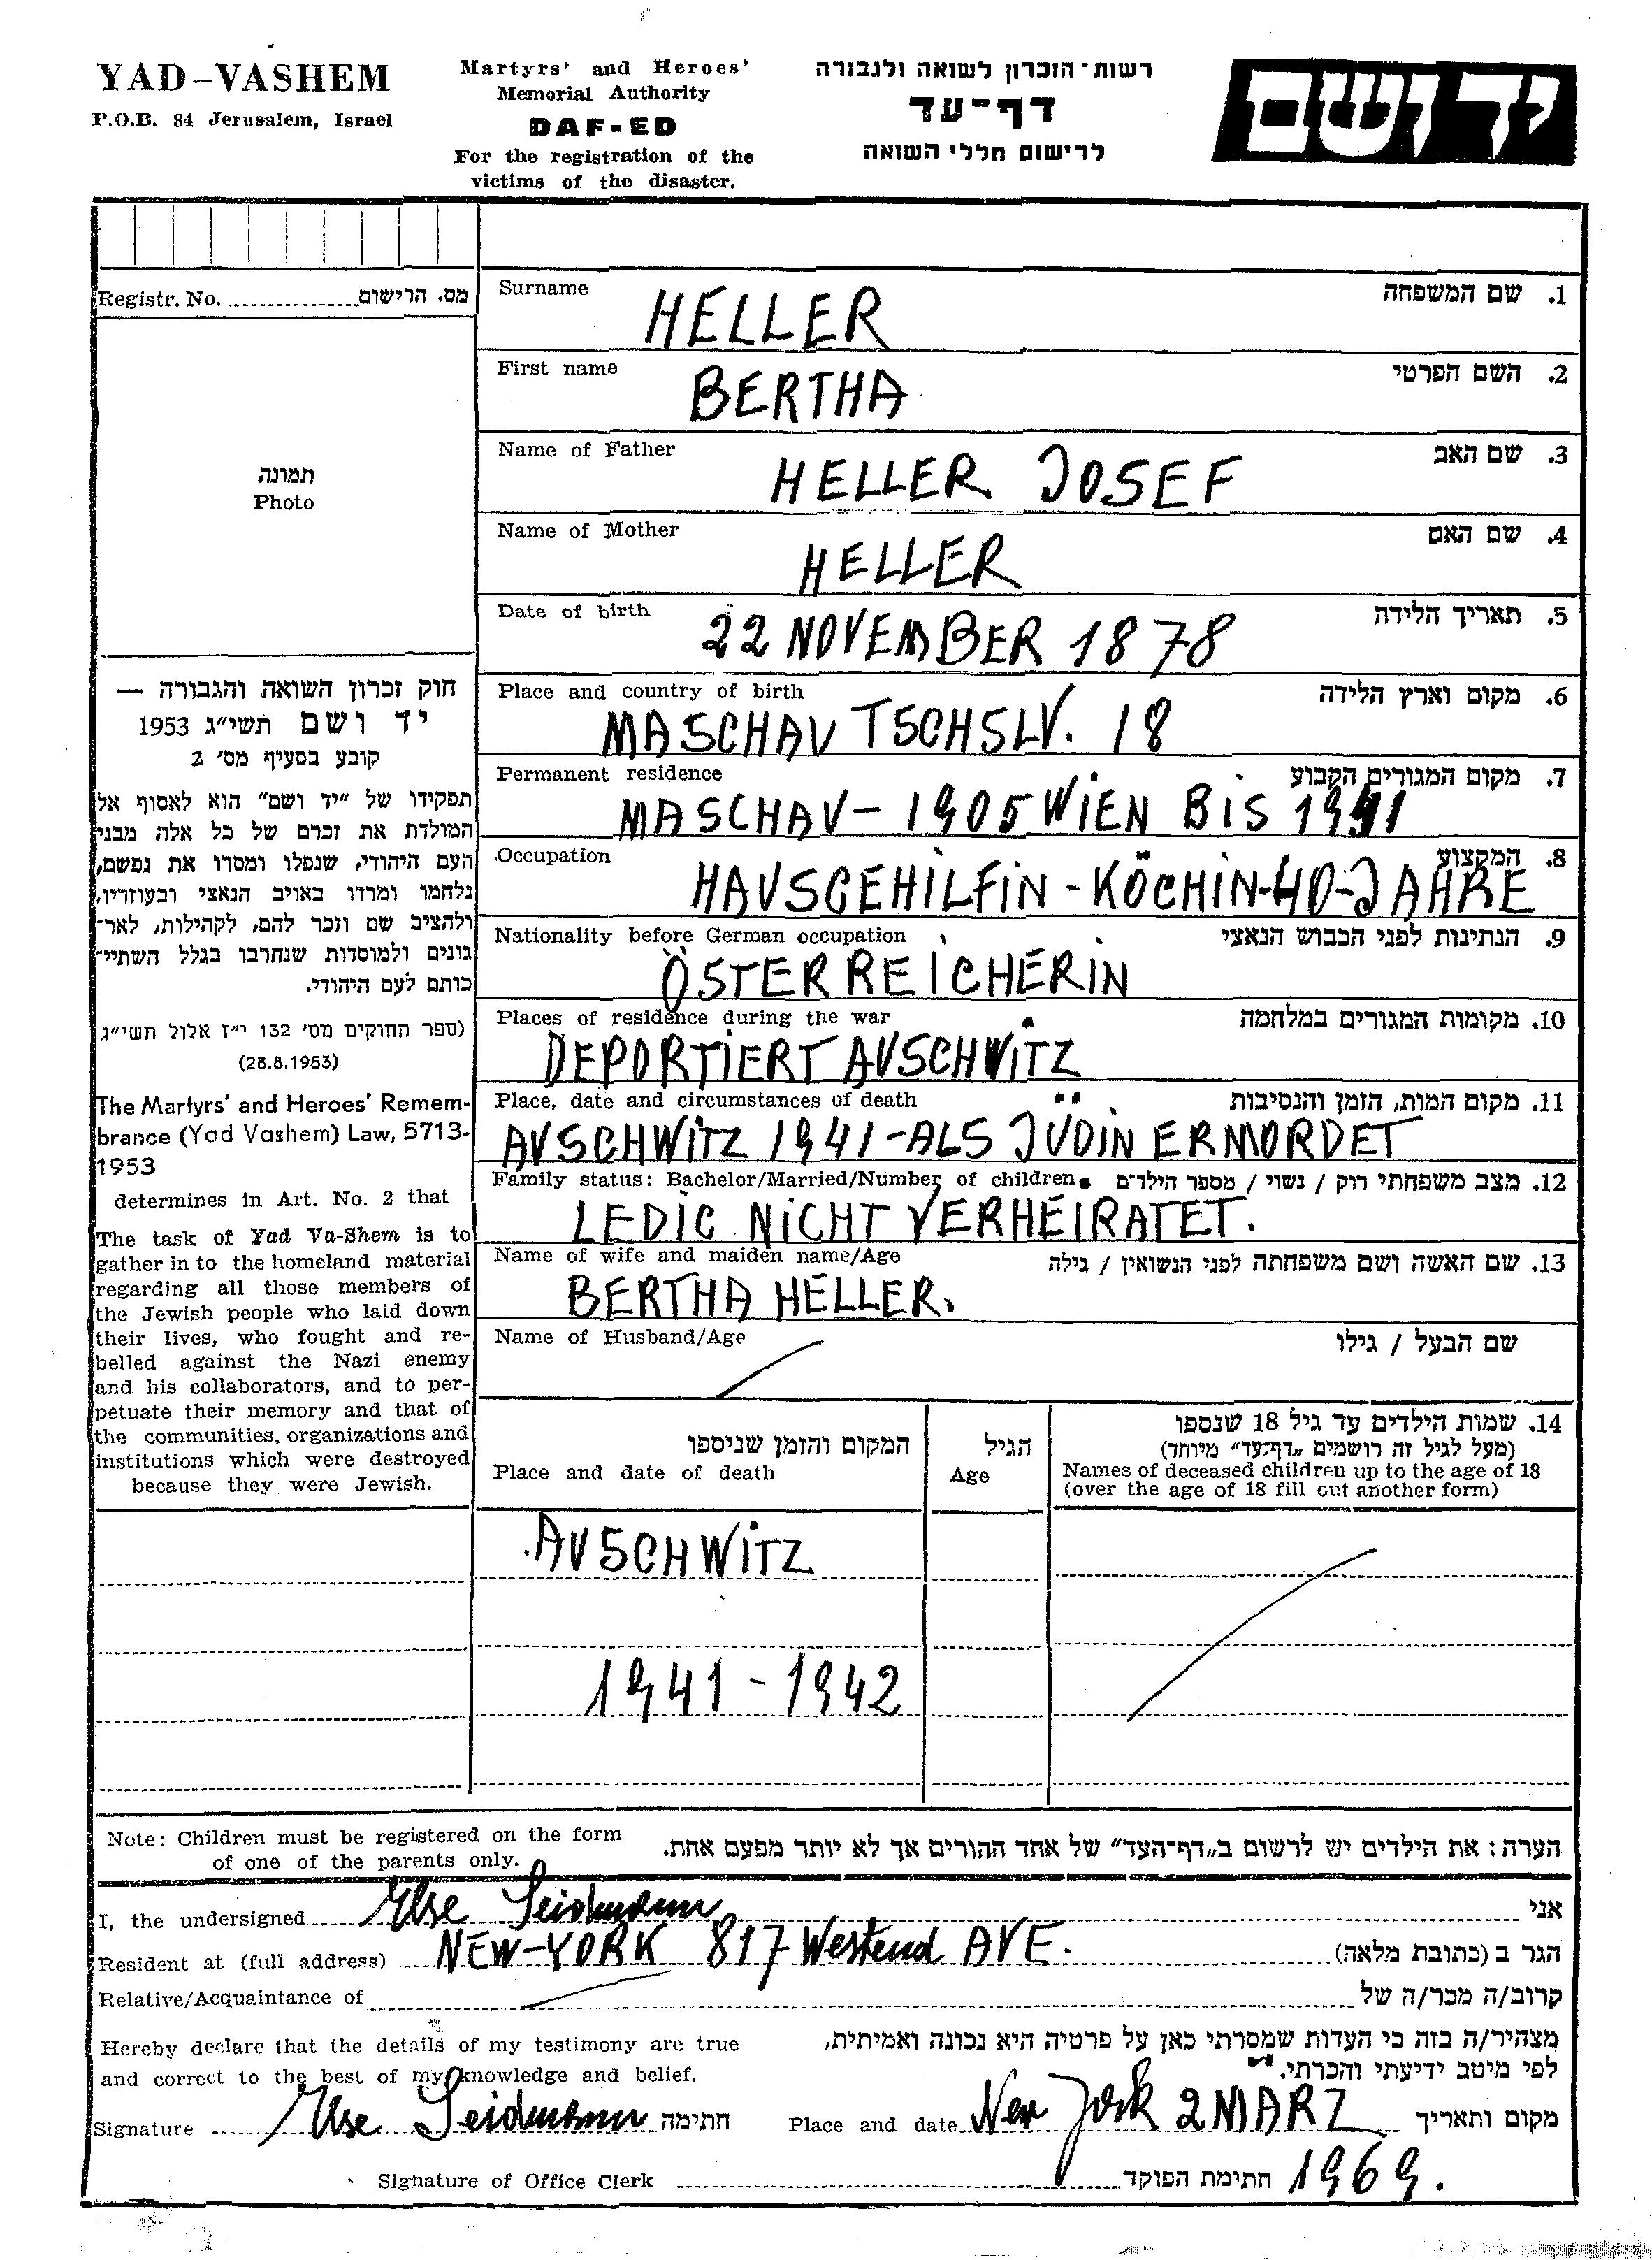 YAD-VASHEM
P.O.B. 84 Jerusalem, Israel
Martyrs' and Heroes'
Memorial Authority
DAF-ED
For the registration of the
victims of the disaster.
רשות-הזכרון לשואה ולגבורה
דף-עד
לרישום חללי השואה
יד ושם
Registr. No. מס. הרישום
תמונה
Photo
חוק זכרון השואה והגבורה —
יד ושם תשי״ג 1953
קובע בסעיף מס׳ 2
תפקידו של ״יד ושם״ הוא לאסוף אל
המולדת את זכרם של כל אלה מבני
העם היהודי, שנפלו ומסרו את נפשם,
נלחמו ומרדו באויב הנאצי ובעוזריו,
ולהציב שם וזכר להם, לקהילות, לאר-
גונים ולמוסדות שנחרבו בגלל השתיי-
כותם לעם היהודי.
(ספר החוקים מס׳ 132 י״ז אלול תשי״ג
(28.8.1953)
The Martyrs' and Heroes' Remem-
brance (Yad Vashem) Law, 5713-
1953
determines in Art. No. 2 that
The task of Yad Va-Shem is to
gather in to the homeland material
regarding all those members of
the Jewish people who laid down
their lives, who fought and re-
belled against the Nazi enemy
and his collaborators, and to per-
petuate their memory and that of
the communities, organizations and
institutions which were destroyed
because they were Jewish.
Surname 1. שם המשפחה
HELLER
First name 2. השם הפרטי
BERTHA
Name of Father 3. שם האב
HELLER JOSEF
Name of Mother 4. שם האם
HELLER
Date of birth 5. תאריך הלידה
22 NOVEMBER 1878
Place and country of birth 6. מקום וארץ הלידה
MASCHAU TSCHSLV. 18
Permanent residence 7. מקום המגורים הקבוע
MASCHAV - 1905 WIEN BIS 1941
Occupation 8. המקצוע
HAUSGEHILFIN - KÖCHIN-40-JAHRE
Nationality before German occupation 9. הנתינות לפני הכבוש הנאצי
ÖSTERREICHERIN
Places of residence during the war 10. מקומות המגורים במלחמה
DEPORTIERT AUSCHWITZ
Place, date and circumstances of death 11. מקום המות, הזמן והנסיבות
AUSCHWITZ 1941-ALS JÜDIN ERMORDET
Family status: Bachelor/Married/Number of children. 12. מצב משפחתי רוק / נשוי / מספר הילדים
LEDIG NICHT VERHEIRATET.
Name of wife and maiden name/Age 13. שם האשה ושם משפחתה לפני הנשואין / גילה
BERTHA HELLER.
Name of Husband/Age שם הבעל / גילו
14. שמות הילדים עד גיל 18 שנספו
(מעל לגיל זה רושמים „דף-עד״ מיוחד)
Names of deceased children up to the age of 18
(over the age of 18 fill out another form)
הגיל
Age
המקום והזמן שניספו
Place and date of death
AUSCHWITZ
1941 - 1942
Note: Children must be registered on the form
of one of the parents only.
הערה: את הילדים יש לרשום ב„דף-העד״ של אחד ההורים אך לא יותר מפעם אחת.
I, the undersigned Else Seidmann אני
Resident at (full address) NEW-YORK 817 Westend AVE. הגר ב (כתובת מלאה)
Relative/Acquaintance of קרוב/ה מכר/ה של
Hereby declare that the details of my testimony are true
and correct to the best of my knowledge and belief.
מצהיר/ה בזה כי העדות שמסרתי כאן על פרטיה היא נכונה ואמיתית,
לפי מיטב ידיעתי והכרתי.
Signature Else Seidmann חתימה Place and date New York 2 MARZ מקום ותאריך
1969.
Signature of Office Clerk חתימת הפוקד